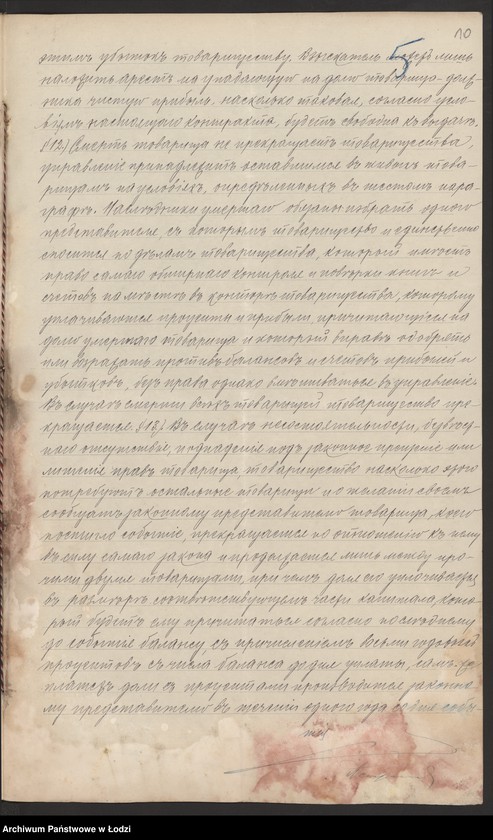 10
этимъ убытокъ товариществу. Взыскатель лишь
наложить арестъ на упадающую на долю товарища-долж-
ника чистую прибыль, насколько таковая, согласно усло-
віямъ настоящаго контракта, будетъ свободна къ выдачѣ.
§12) Смерть товарища не прекращаетъ товарищества,
управленіе принадлежитъ оставшимся въ живыхъ това-
рищамъ на условіяхъ, опредѣленныхъ въ шестомъ пара-
графѣ. Наслѣдники умершаго обязаны избрать одного
представителя, съ которымъ товарищество и единственно
сносится по дѣламъ товарищества, который имѣетъ
право самаго обширнаго контроля и повѣрки книгъ и
счетовъ на мѣстѣ въ конторѣ товарищества, которому
уплачиваются проценты и прибыли, причитающіеся на
долю умершаго товарища и который вправѣ одобрять
или возражать противъ балансовъ и счетовъ прибылей и
убытковъ, безъ права однако вмѣшиваться въ управленіе.
Въ случаѣ смерти товарищество пре-
кращается. §13) Въ случаѣ несостоятельности, безвѣст-
наго отсутствія, подпаденія подъ законное прещеніе или
лишенія правъ товарища, товарищество насколько этого
потребуютъ остальные товарищи и о желаніи своемъ
сообщатъ законному представителю товарища, коего
постигло событіе, прекращается по отношенію къ нему
въ силу самаго закона и продолжается лишь между про-
чими двумя товарищами, при чемъ доля его уплачивается
въ размѣрѣ соотвѣтствующемъ части капитала, кото-
рый будетъ ему причитаться согласно послѣднему
до событія балансу, съ причисленіемъ годовыхъ
процентовъ съ числа баланса до дня уплаты, самъ же
платежъ доли съ процентами производится законно-
му представителю въ теченіи одного года со дня собы-
тія
Archiwum Państwowe w Łodzi